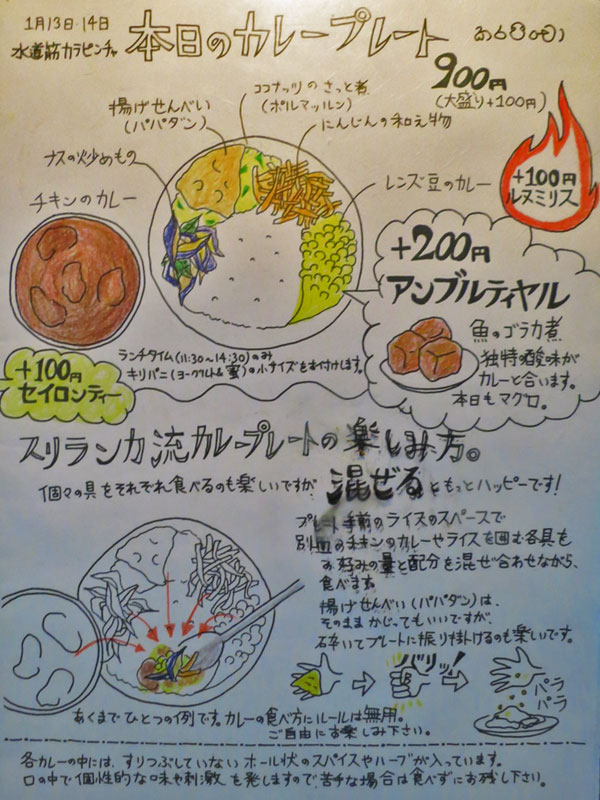 1月13日・14日
水道筋カラピンチャ
本日のカレープレート
900円
(大盛り+100円)
ココナッツのさっと煮
(ポルマッルン)
揚げせんべい
(パパダン)
にんじんの和え物
ナスの炒めもの
レンズ豆のカレー
チキンのカレー
+100円
ルヌミリス
+200円
アンブルティヤル
魚のゴラカ煮
独特の酸味が
カレーと合います。
本日もマグロ。
ランチタイム(11:30~14:30)のみ
キリパニ(ヨーグルト&蜜)の小サイズをお付けします。
+100円
セイロンティー
スリランカ流カレープレートの楽しみ方。
個々の具をそれぞれ食べるのも楽しいですが 混ぜる ともっとハッピーです!
プレート手前のライスのスペースで
別皿のチキンのカレーやライスを囲む各具を
お好みの量と配分を混ぜ合わせながら、
食べます。
揚げせんべい(パパダン)は、
そのままかじってもいいですが、
砕いてプレートに振り掛けるのも楽しいです。
バリッ!
パラ
パラ
あくまでひとつの例です。カレーの食べ方にルールは無用。
ご自由にお楽しみ下さい。
各カレーの中には、すりつぶしていないホール状のスパイスやハーブが入っています。
口の中で個性的な味や刺激を発しますので苦手な場合は食べずにお残し下さい。